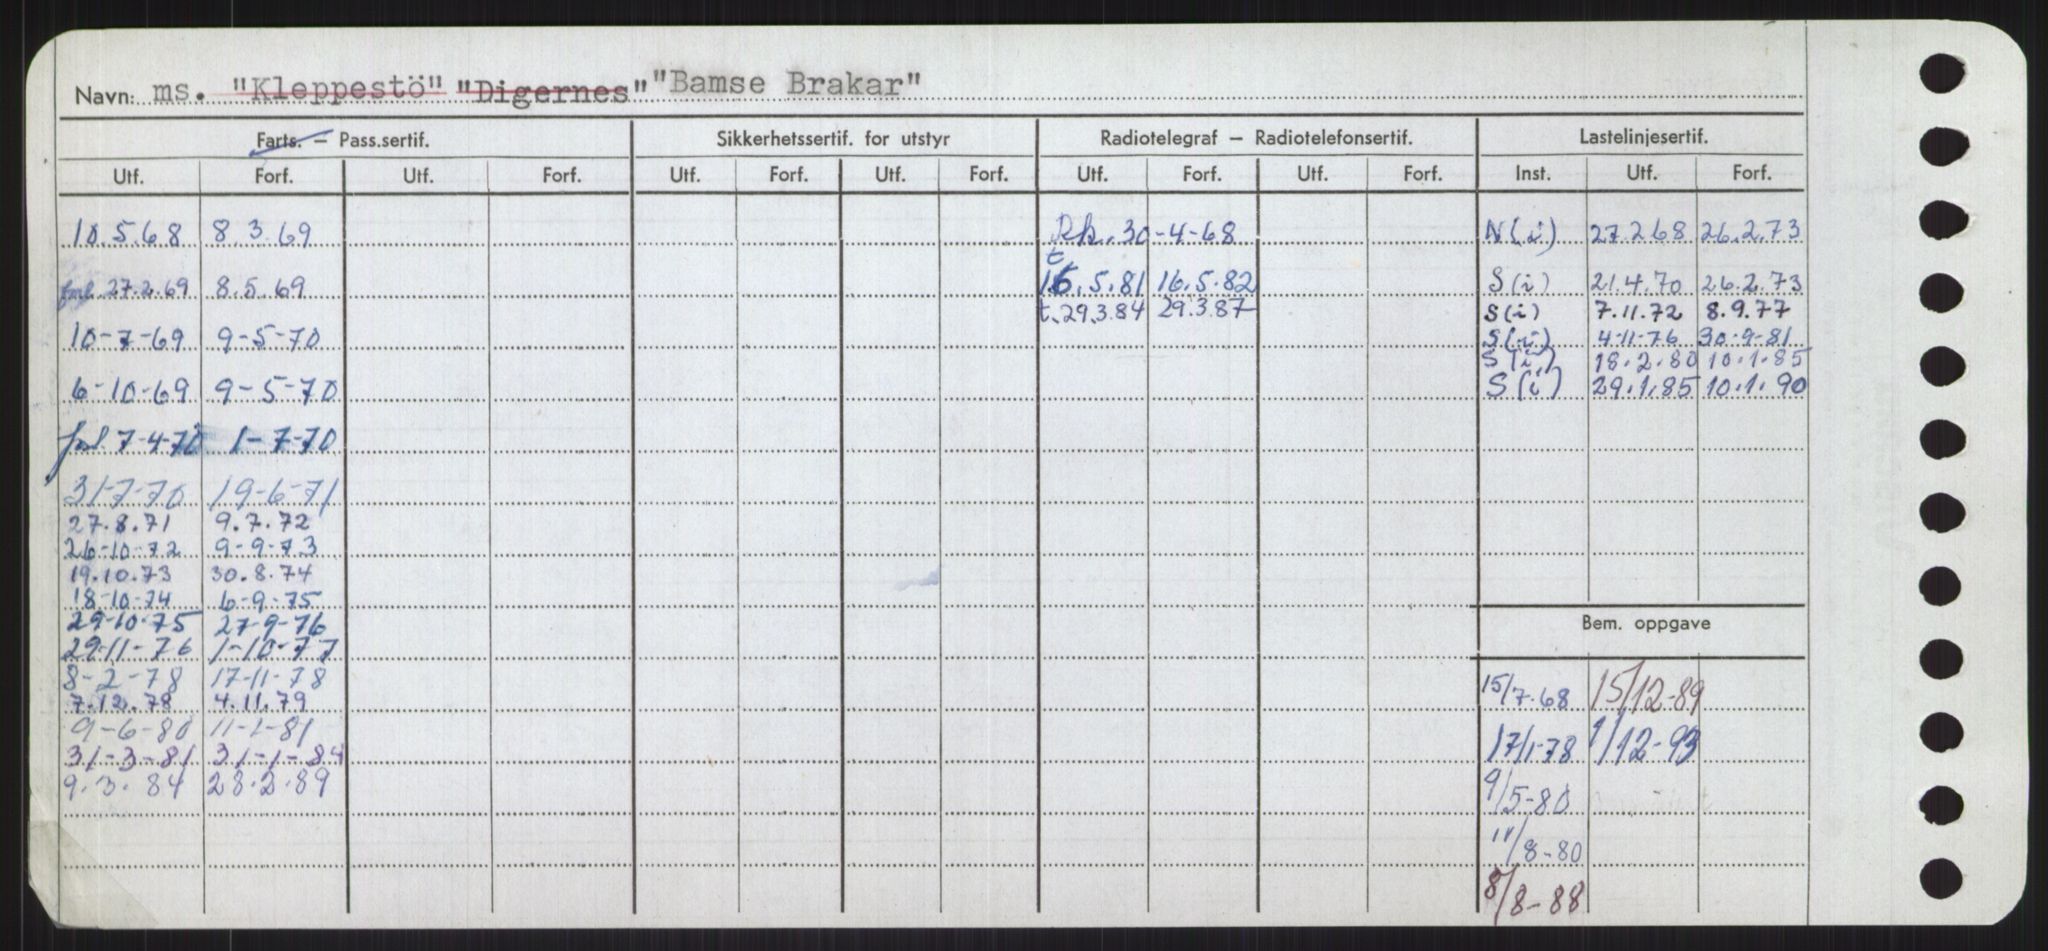 Navn: ms. "Kleppestö" "Digernes" "Bamse Brakar"
Farts. — Pass.sertif. Sikkerhetssertif. for utstyr Radiotelegraf — Radiotelefonsertif. Lastelinjesertif.
Utf. Forf. Utf. Forf. Utf. Forf. Utf. Forf. Utf. Forf. Utf. Forf. Inst. Utf. Forf.
10.5.68 8.3.69 Rk. 30-4-68 N(i) 27.2.68 26.2.73
forl. 27.2.69 8.5.69 t 16.5.81 16.5.82 S(i) 21.4.70 26.2.73
t. 29.3.84 29.3.87 S(i) 7.11.72 8.9.77
10-7-69 9-5-70 S(i) 4-11-76 30-9-81
S(i) 18.2.80 10.1.85
6-10-69 9-5-70 S(i) 29.1.85 10.1.90
forl. 7-4-70 1-7-70
31-7-70 19-6-71
27.8.71 9.7.72
26-10-72 9-9-73
19.10.73 30.8.74
18-10-74 6-9-75
29-10-75 27-9-76
Bem. oppgave
29-11-76 1-10-77
8-2-78 17-11-78
7.12.78 4.11.79 15/7-68 15/12-89
9-6-80 11-1-81
31-3-81 31-1-84 17/1-78 1/12-93
9.3.84 28.2.89
9/5-80
11/8-80
8/8-88